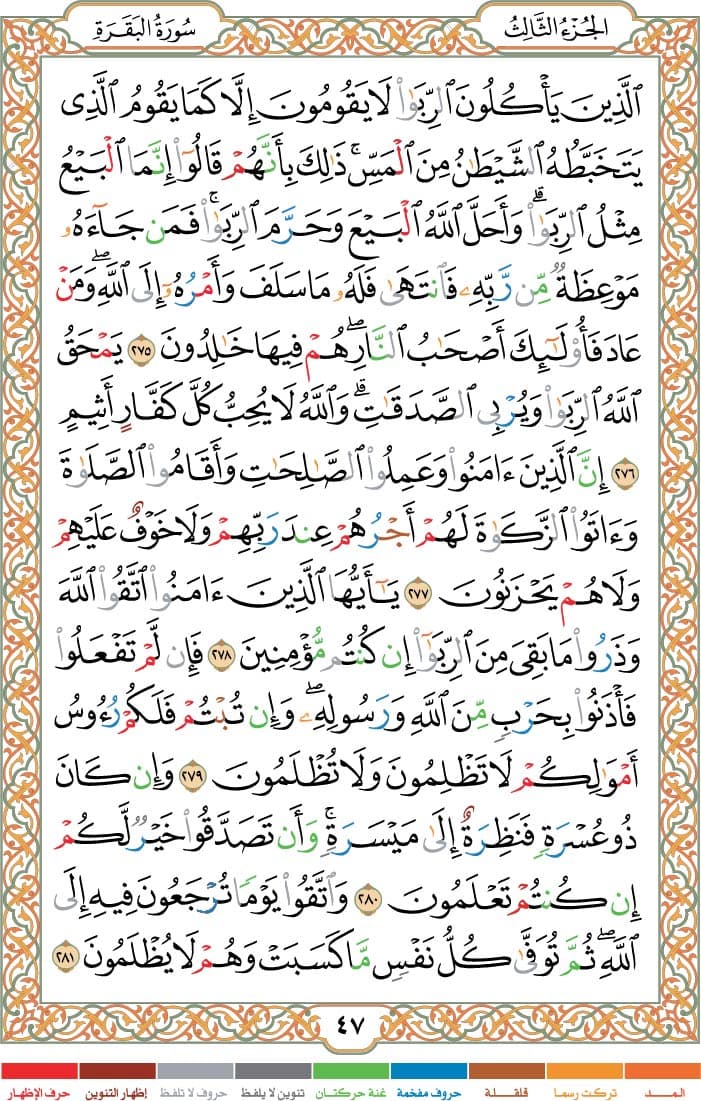 الجُزْءُ الثَّالِثُ
سُورَةُ البَقَرَةِ
ٱلَّذِينَ يَأْكُلُونَ ٱلرِّبَوٰا۟ لَا يَقُومُونَ إِلَّا كَمَا يَقُومُ ٱلَّذِى
يَتَخَبَّطُهُ ٱلشَّيْطَٰنُ مِنَ ٱلْمَسِّ ۚ ذَٰلِكَ بِأَنَّهُمْ قَالُوٓا۟ إِنَّمَا ٱلْبَيْعُ
مِثْلُ ٱلرِّبَوٰا۟ ۗ وَأَحَلَّ ٱللَّهُ ٱلْبَيْعَ وَحَرَّمَ ٱلرِّبَوٰا۟ ۚ فَمَن جَآءَهُۥ
مَوْعِظَةٌ مِّن رَّبِّهِۦ فَٱنتَهَىٰ فَلَهُۥ مَا سَلَفَ وَأَمْرُهُۥٓ إِلَى ٱللَّهِ ۖ وَمَنْ
عَادَ فَأُو۟لَٰٓئِكَ أَصْحَٰبُ ٱلنَّارِ ۖ هُمْ فِيهَا خَٰلِدُونَ ٢٧٥ يَمْحَقُ
ٱللَّهُ ٱلرِّبَوٰا۟ وَيُرْبِى ٱلصَّدَقَٰتِ ۗ وَٱللَّهُ لَا يُحِبُّ كُلَّ كَفَّارٍ أَثِيمٍ
٢٧٦ إِنَّ ٱلَّذِينَ ءَامَنُوا۟ وَعَمِلُوا۟ ٱلصَّٰلِحَٰتِ وَأَقَامُوا۟ ٱلصَّلَوٰةَ
وَءَاتَوُا۟ ٱلزَّكَوٰةَ لَهُمْ أَجْرُهُمْ عِندَ رَبِّهِمْ وَلَا خَوْفٌ عَلَيْهِمْ
وَلَا هُمْ يَحْزَنُونَ ٢٧٧ يَٰٓأَيُّهَا ٱلَّذِينَ ءَامَنُوا۟ ٱتَّقُوا۟ ٱللَّهَ
وَذَرُوا۟ مَا بَقِىَ مِنَ ٱلرِّبَوٰٓا۟ إِن كُنتُم مُّؤْمِنِينَ ٢٧٨ فَإِن لَّمْ تَفْعَلُوا۟
فَأْذَنُوا۟ بِحَرْبٍ مِّنَ ٱللَّهِ وَرَسُولِهِۦ ۖ وَإِن تُبْتُمْ فَلَكُمْ رُءُوسُ
أَمْوَٰلِكُمْ لَا تَظْلِمُونَ وَلَا تُظْلَمُونَ ٢٧٩ وَإِن كَانَ
ذُو عُسْرَةٍ فَنَظِرَةٌ إِلَىٰ مَيْسَرَةٍ ۚ وَأَن تَصَدَّقُوا۟ خَيْرٌ لَّكُمْ
إِن كُنتُمْ تَعْلَمُونَ ٢٨٠ وَٱتَّقُوا۟ يَوْمًا تُرْجَعُونَ فِيهِ إِلَى
ٱللَّهِ ۖ ثُمَّ تُوَفَّىٰ كُلُّ نَفْسٍ مَّا كَسَبَتْ وَهُمْ لَا يُظْلَمُونَ ٢٨١
٤٧
المــــد تركت رسما قلقلة حروف مفخمة غنة حركتان تنوين لا يلفظ حروف لا تلفظ إظهار التنوين حرف الإظهار